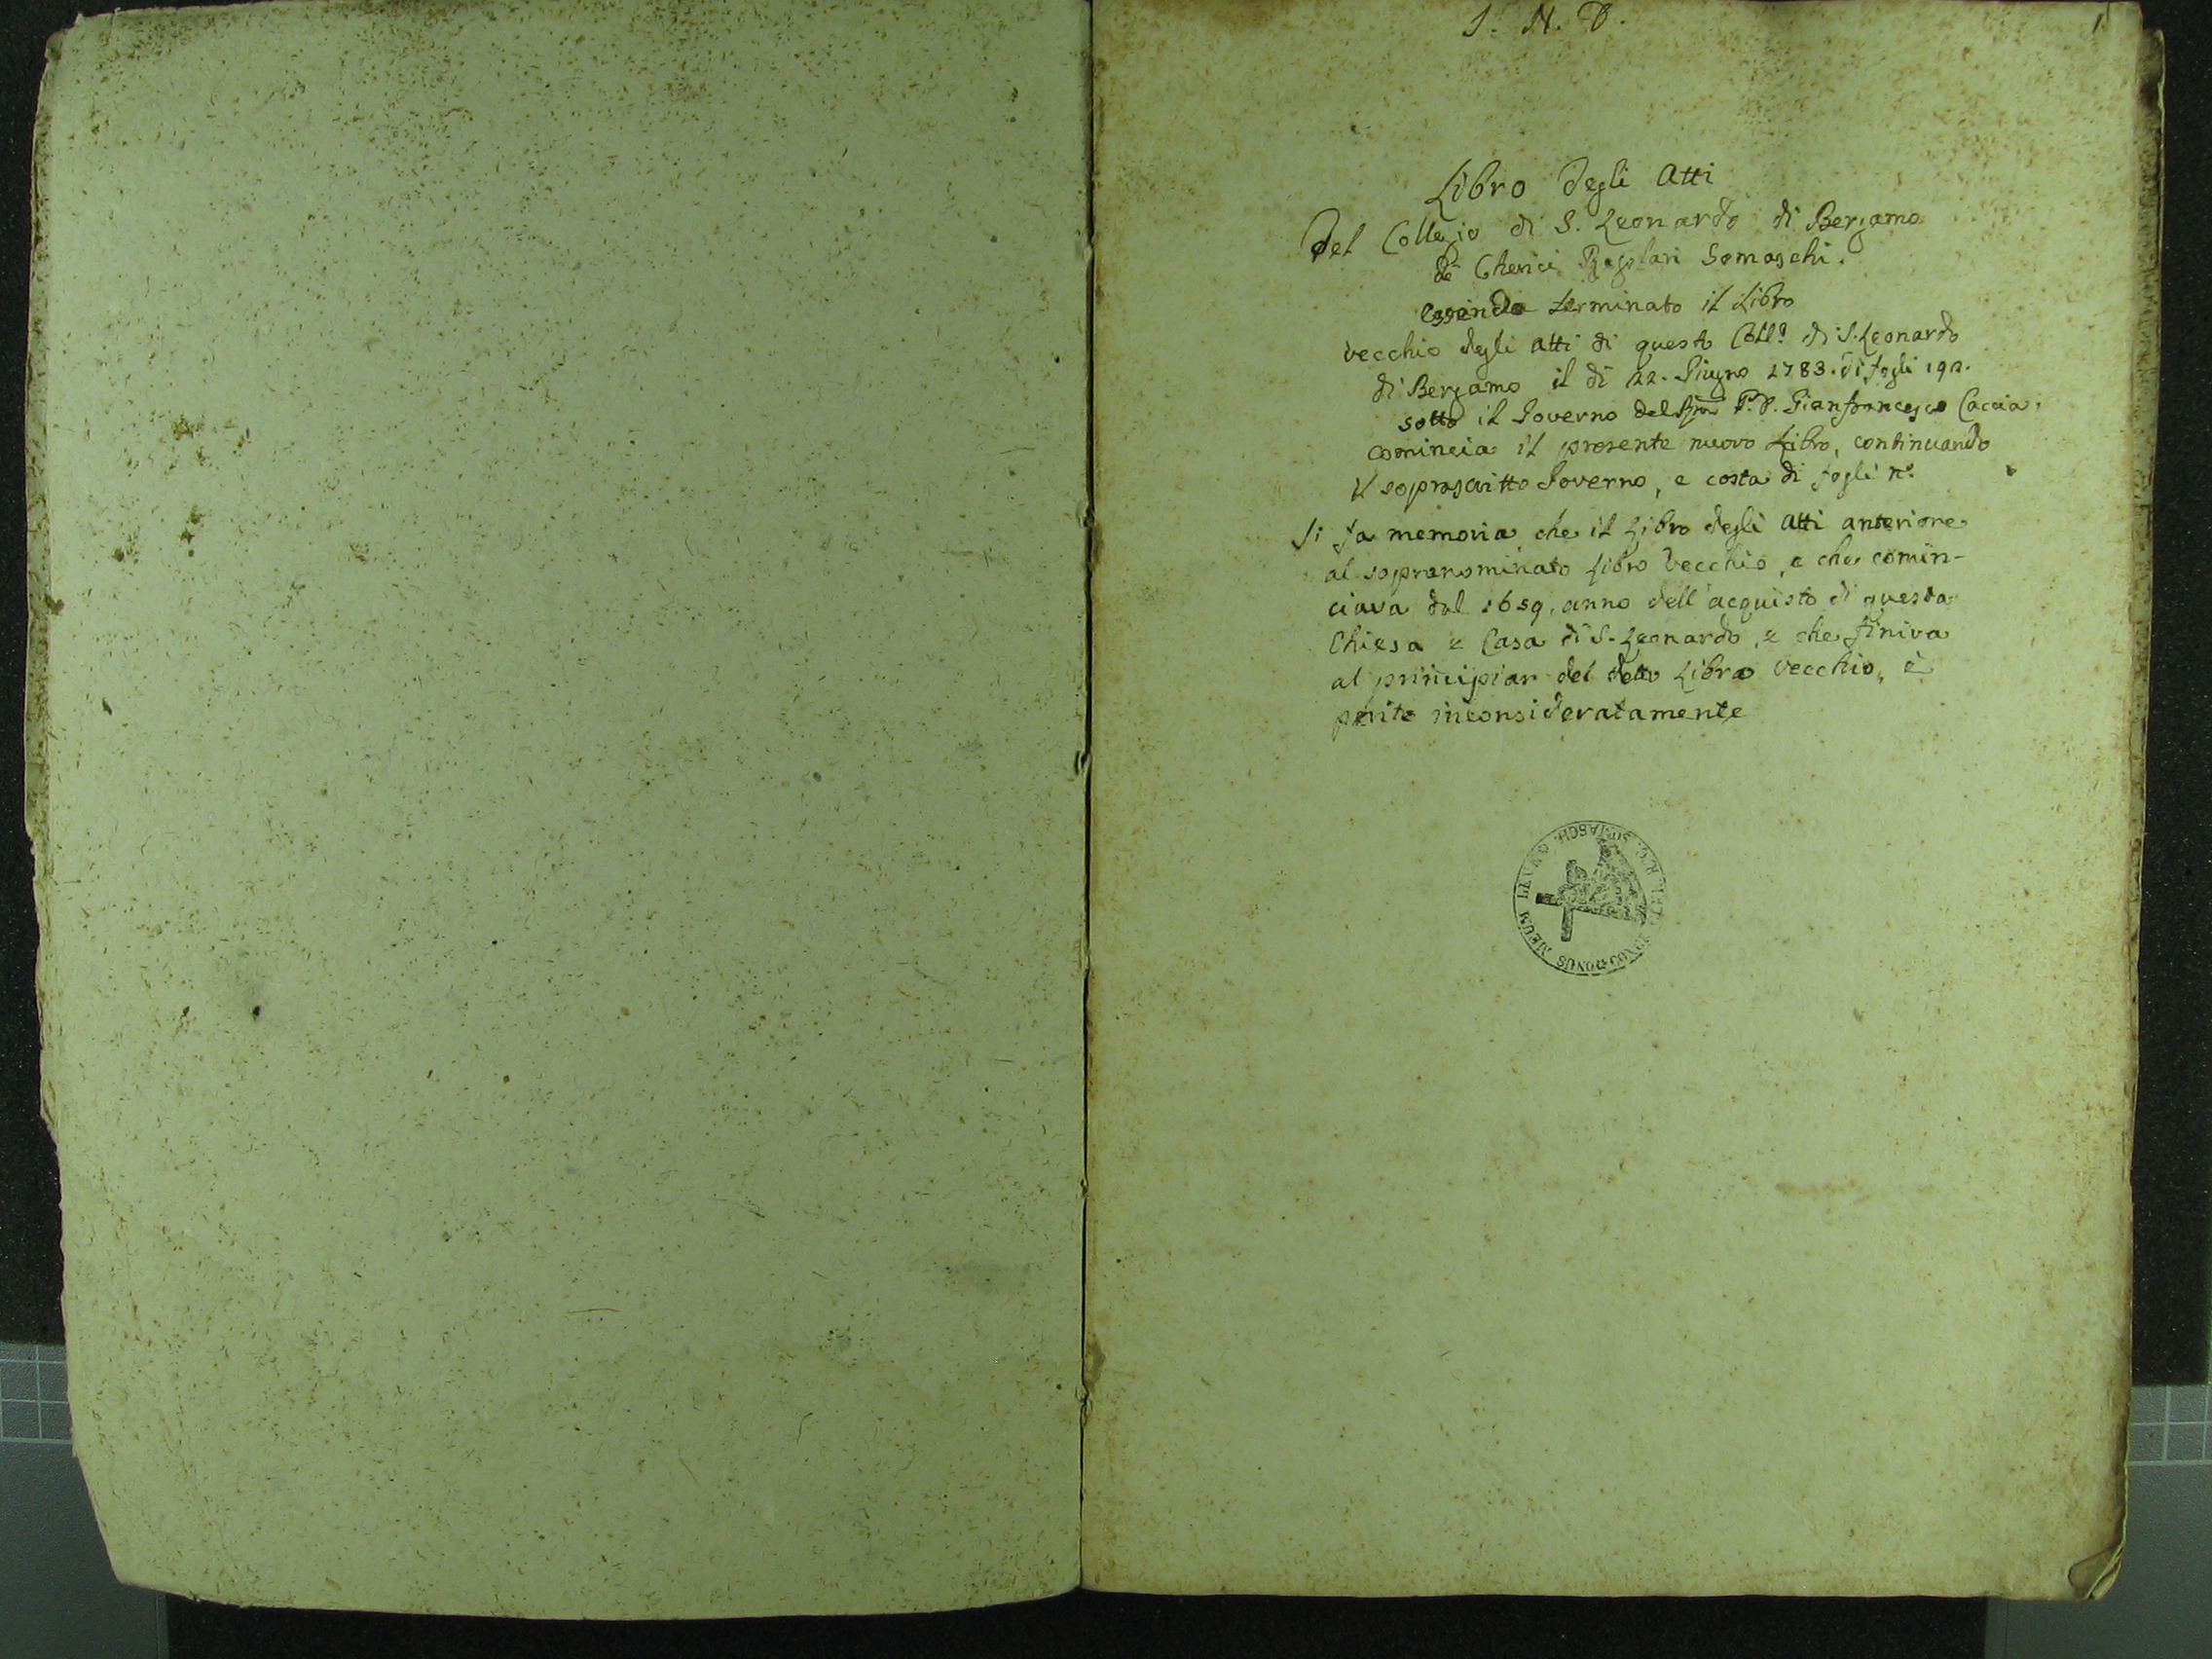 I. N. D.
1
Libro degli Atti
Del Collegio di S. Leonardo di Bergamo
de' Cherici Regolari Somaschi.
Essendo terminato il Libro
vecchio degli Atti di questo Coll.º di S. Leonardo
di Bergamo il dì 22. Giugno 1783. di fogli 192.
sotto il Governo del P. D. Gianfrancesco Caccia,
comincia il presente nuovo Libro, continuando
il soprascritto Governo, e costa di fogli n.º
Si fa memoria che il Libro degli Atti anteriore
al sopranominato Libro Vecchio, e che comin-
ciava dal 1659, anno dell'acquisto di questa
Chiesa e Casa di S. Leonardo, e che finiva
al principiar del detto Libro Vecchio, è
perito inconsideratamente
ONUS MEUM